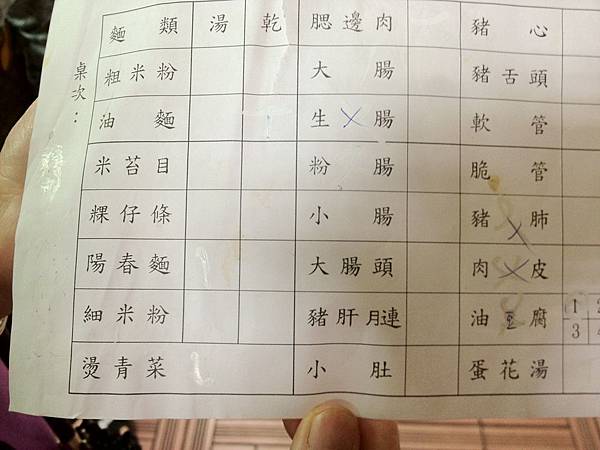 桌次：
麵類 湯 乾 腮邊肉 豬心
粗米粉 大腸 豬舌頭
油麵 生腸 軟管
米苔目 粉腸 脆管
粿仔條 小腸 豬肺
陽春麵 大腸頭 肉皮
細米粉 豬肝月連 油豆腐 1 2 3
燙青菜 小肚 蛋花湯